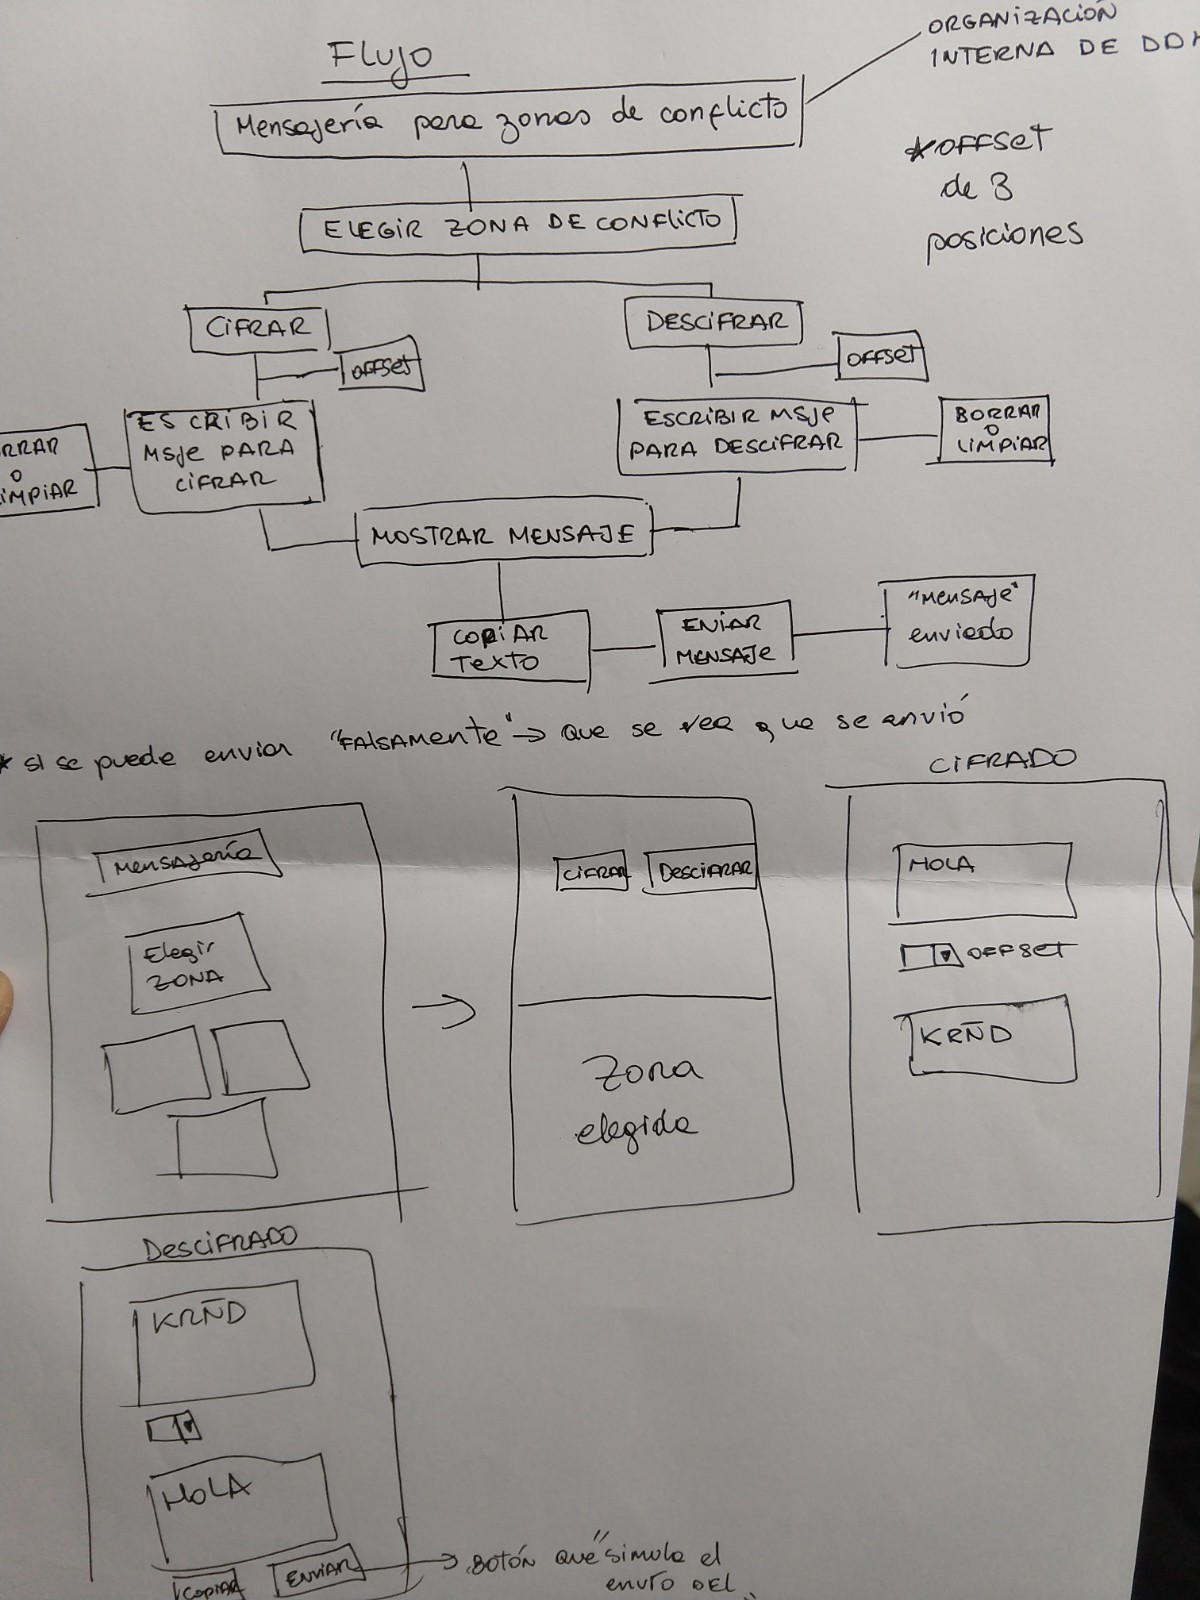 Flujo
ORGANIZACIÓN
INTERNA DE DDH
Mensajería para zonas de conflicto
*OFFSET
de 3
posiciones
ELEGIR ZONA DE CONFLICTO
CIFRAR
DESCIFRAR
OFFSET
OFFSET
RRAR
O
IMPIAR
ESCRIBIR
MSJE PARA
CIFRAR
ESCRIBIR MSJE
PARA DESCIFRAR
BORRAR
O
LIMPIAR
MOSTRAR MENSAJE
COPIAR
TEXTO
ENIAR
MENSAJE
"MENSAJE"
enviado
* SI se puede enviar "FALSAMENTE" → que se vea que se envió
Mensajería
Elegir
ZONA
CIFRAR
DESCIFRAR
Zona
elegida
CIFRADO
HOLA
OFFSET
KRÑD
DESCIFRADO
KRÑD
HOLA
COPIAR
ENVIAR
→ BOTÓN QUE "simula el
envío DEL